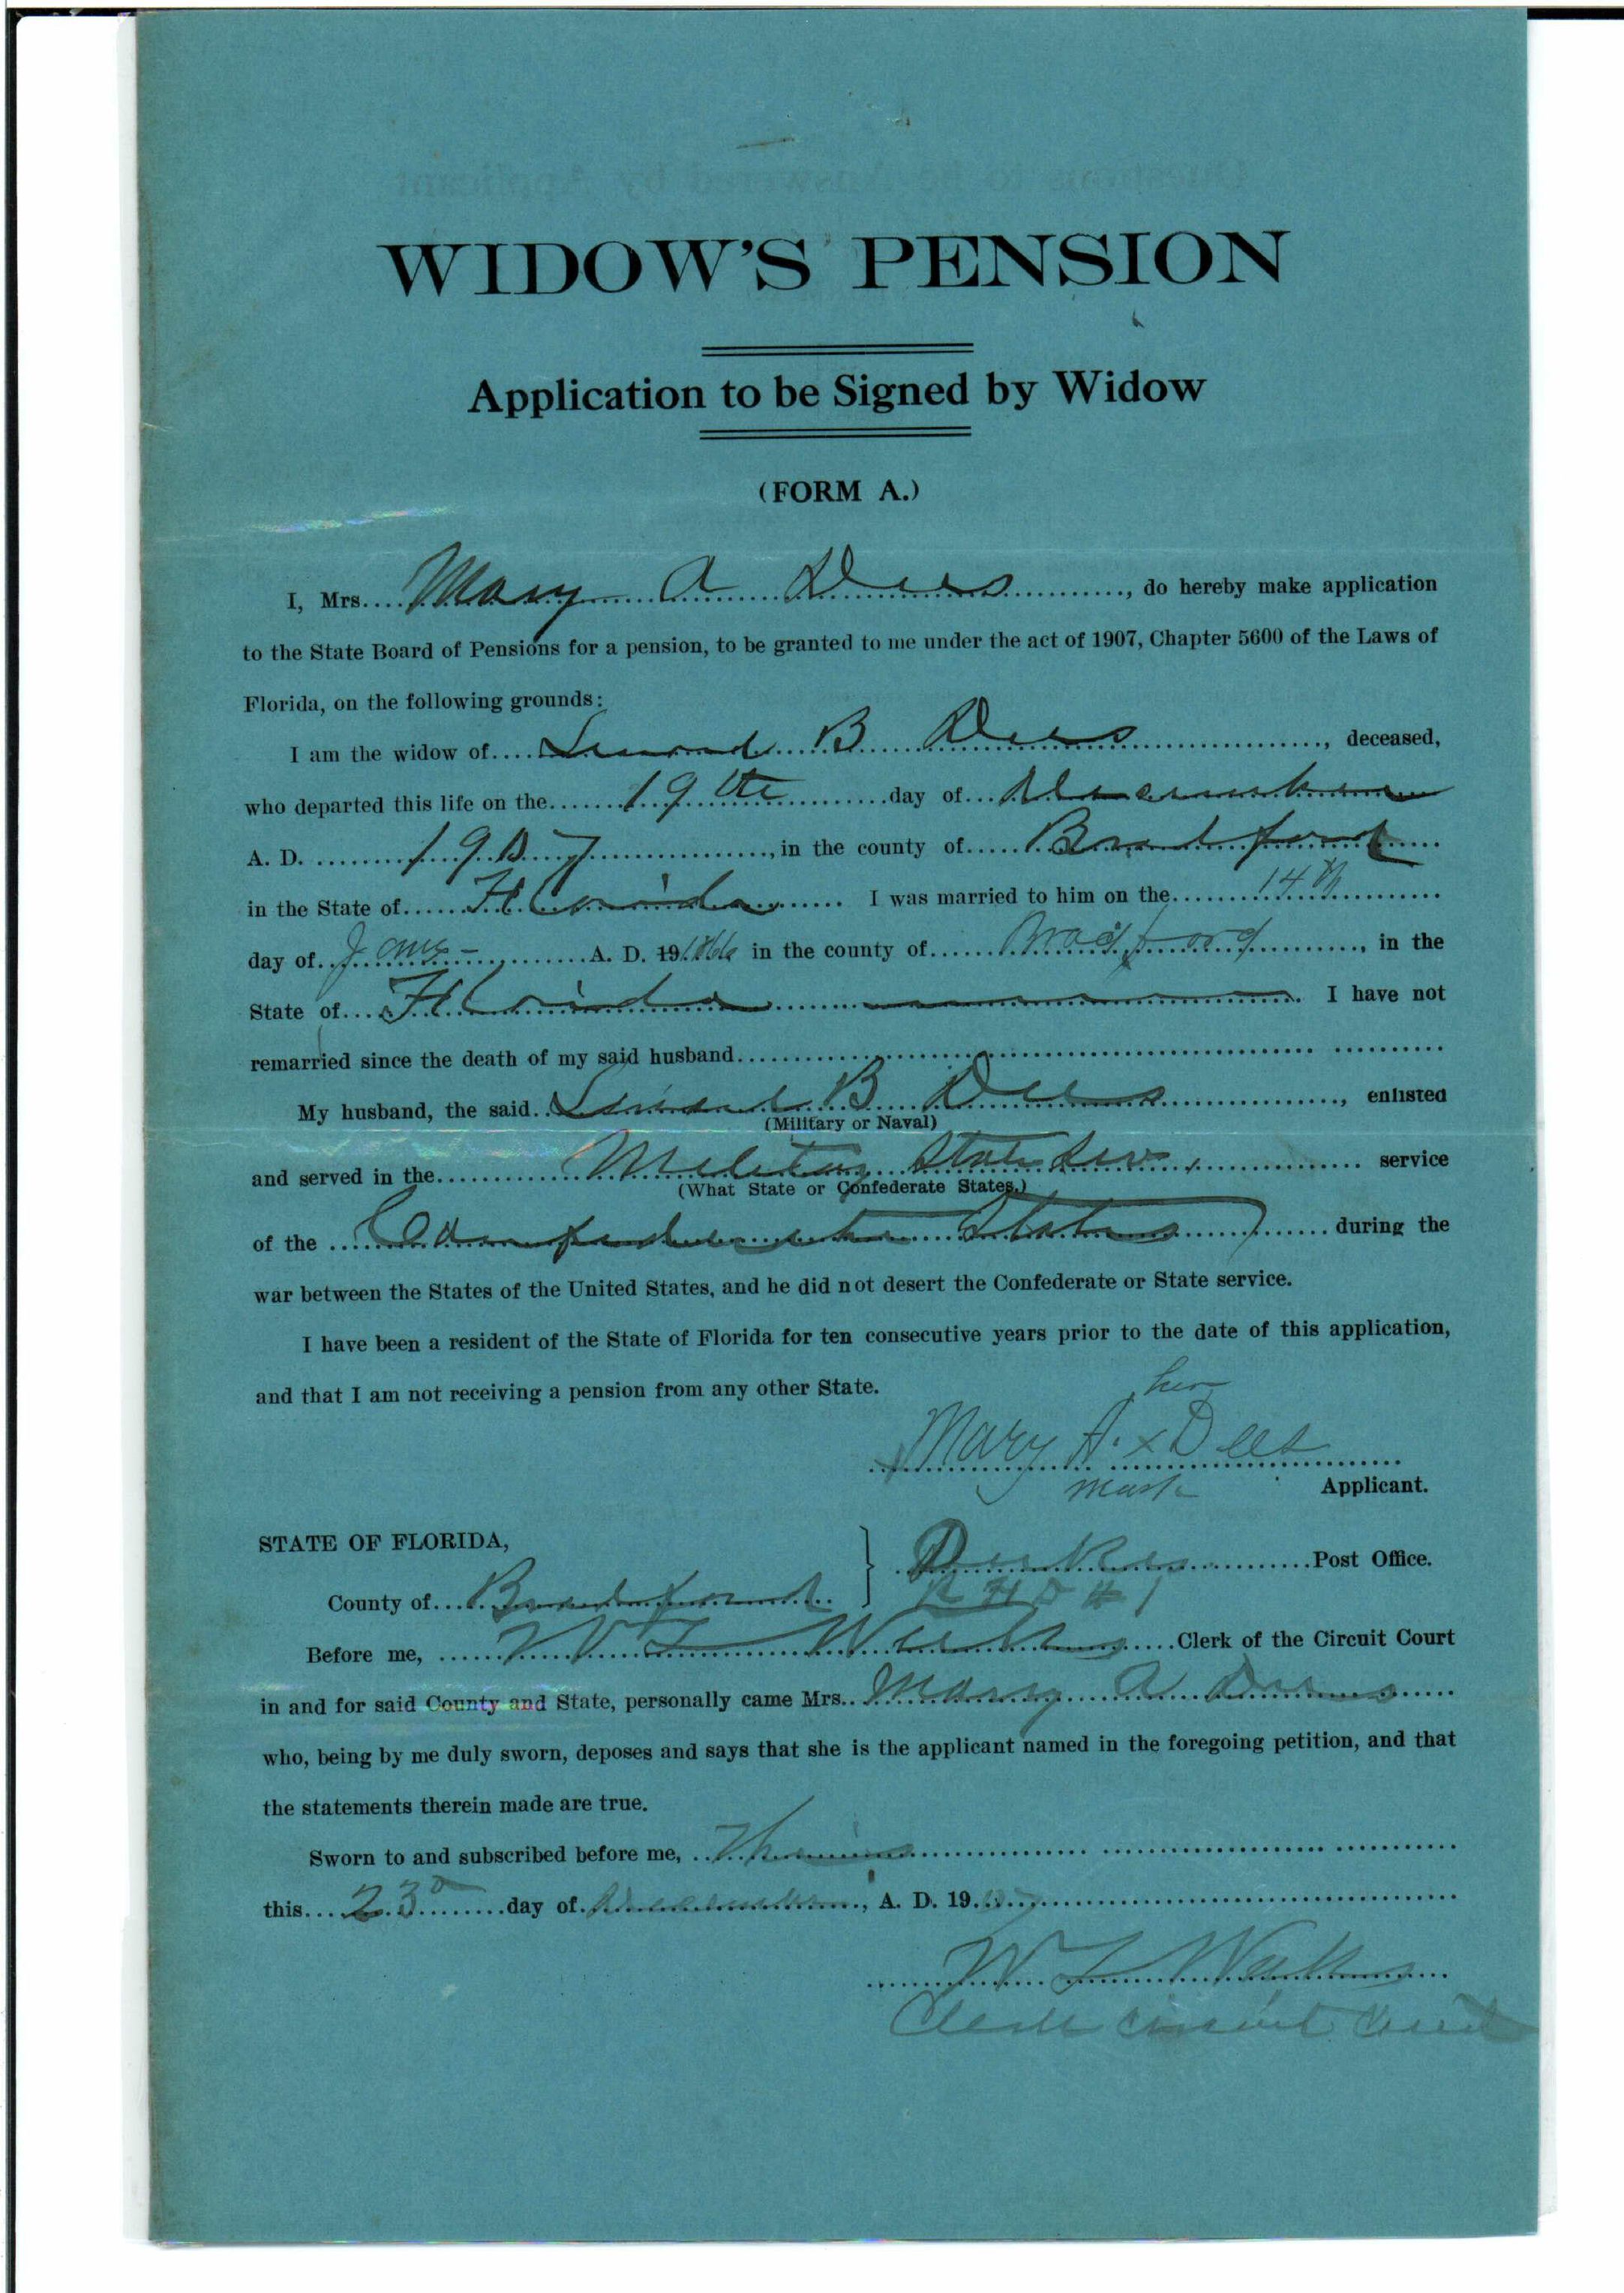 WIDOW'S PENSION
Application to be Signed by Widow
(FORM A.)
I, Mrs. Mary A Dees, do hereby make application
to the State Board of Pensions for a pension, to be granted to me under the act of 1907, Chapter 5600 of the Laws of
Florida, on the following grounds:
I am the widow of B Dees, deceased,
who departed this life on the 19th day of December
A. D. 1907, in the county of Bradford
in the State of Florida I was married to him on the 14th
day of A. D. 19 1866 in the county of Bradford, in the
State of Florida. I have not
remarried since the death of my said husband
My husband, the said B Dees, enlisted
(Military or Naval)
and served in the Military State service
(What State or Confederate States.)
of the Confederate States during the
war between the States of the United States, and he did not desert the Confederate or State service.
I have been a resident of the State of Florida for ten consecutive years prior to the date of this application,
and that I am not receiving a pension from any other State.
her
Mary A. x Dees
mark Applicant.
STATE OF FLORIDA,
Post Office.
County of Bradford R F D # 1
Before me, Clerk of the Circuit Court
in and for said County and State, personally came Mrs. Mary A Dees
who, being by me duly sworn, deposes and says that she is the applicant named in the foregoing petition, and that
the statements therein made are true.
Sworn to and subscribed before me, This
this 23d day of December, A. D. 19
Clerk circuit court